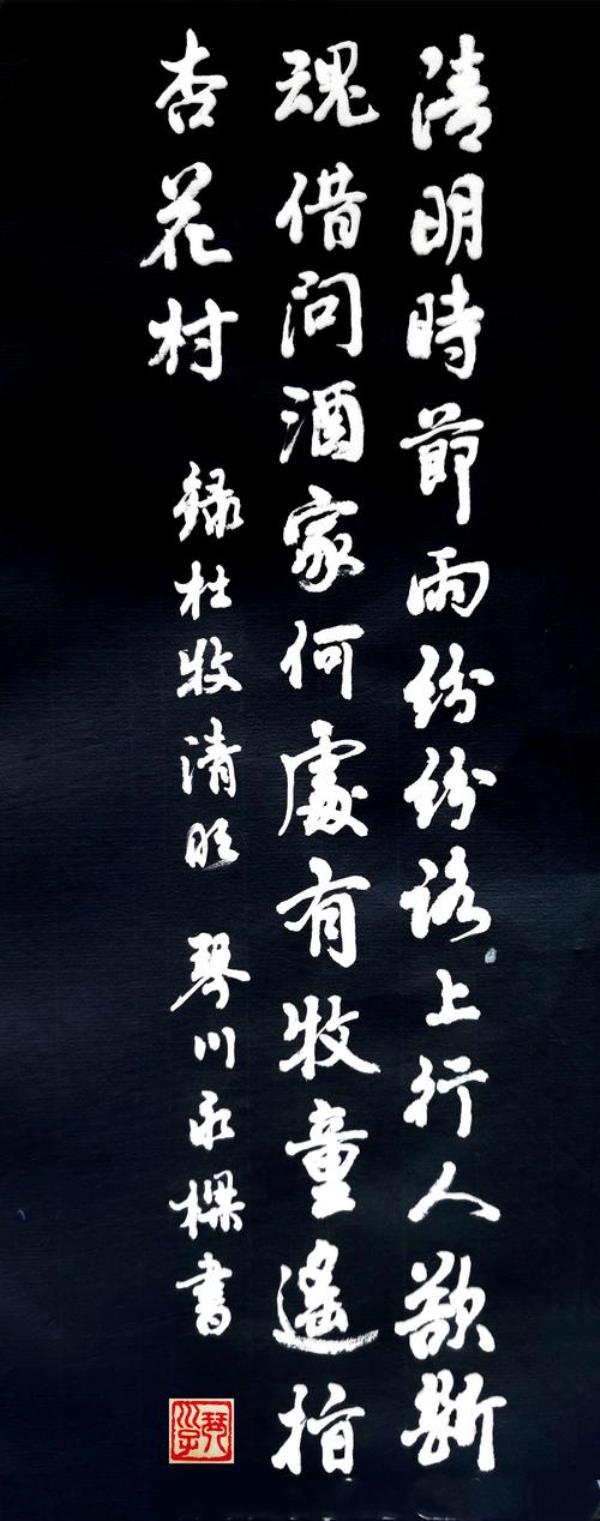 清明時節雨紛紛路上行人欲斷
魂借問酒家何處有牧童遙指
杏花村
錄杜牧清明 琴川永樑書